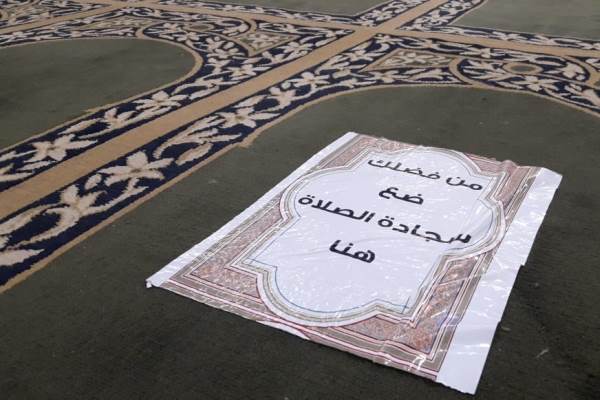 من فضلك
ضع
سجادة الصلاة
هنا